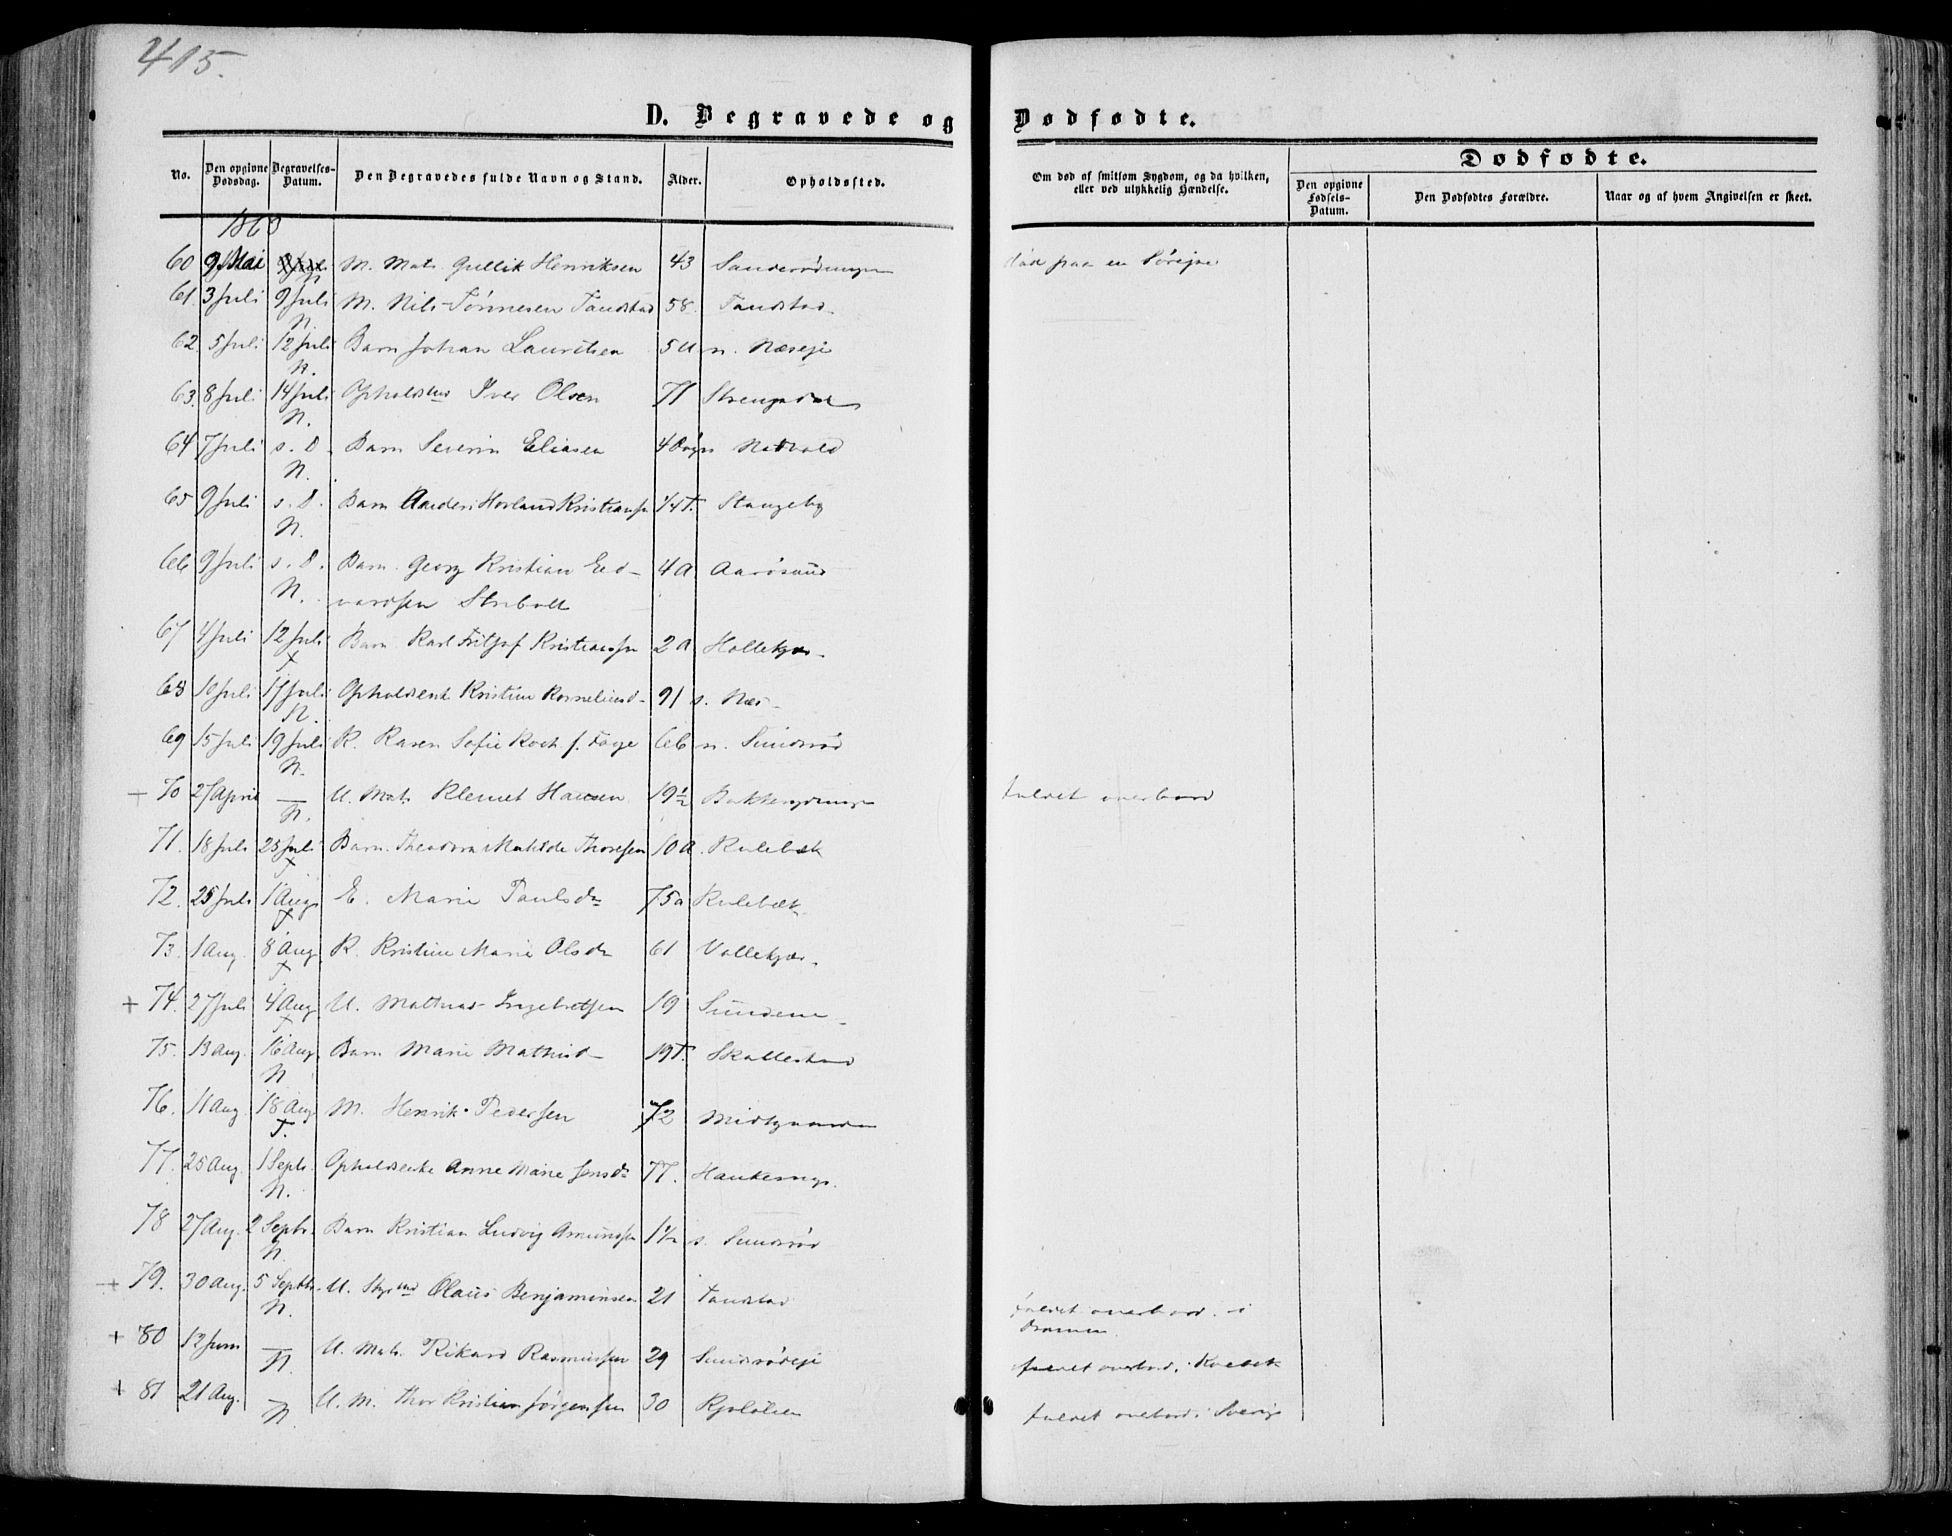 415.
D. Begravede og Dødfødte.
No. Den opgivne Dødsdag. Begravelses-Datum. Den Begravedes fulde Navn og Stand. Alder. Opholdssted. Om død af smitsom Sygdom, og da hvilken, eller ved ulykkelig Hændelse.
Dødfødte.
Den opgivne Fødsels-Datum. Den Dødfødtes Forældre. Naar og af hvem Angivelsen er skeet.
186
60 9 Mai N. M. Mats. Gullik Henriksen 43 død paa en Sørejse
61. 3 Juli 9 Juli N. M. Nils Tønnesen Tandstad 58. Tandstad.
62. 5 Juli 12 Juli N. Barn Johan Lauritsen 5 U n. Næseje
63. 8 Juli 14 Juli N. Opholdsm Iver Olsen 71 Strengsdal
64 7 Juli s. D. N. Barn Severin Eliasen 4 Døgn
65 9 Juli s. D. N. Barn Hovland Kristiansen 14T. Stangeby
66 9 Juli s. D. N. Barn Georg Kristian Ed- 4 A Aarøsund
vardsen Stribolt
67 4 Juli 12 Juli T Barn Karl Fritjof Kristiansen 2 A Hollekjær
68 10 Juli 17 Juli N. Opholdsenk Kristine Kornelius d. 91 s. Næs
69 15 Juli 19 Juli N. K. Karen Sofie Koch f. Foye 66 n. Sundrød
+ 70 27 April — N. U. Mats. Klemet Hansen 19½ faldet overbord
71. 18 Juli 25 Juli T Barn Theodora Matilde Thoresen 10 A. Rulebæk
72. 25 Juli 1 Aug T E. Marie Paulsdr 75 a Rulebæk
73. 1 Aug. 8 Aug T K. Kristine Marie Olsdr 61 Vollekjær.
+ 74. 27 Juli 4 Aug T U. Mathias Ingebretsen 19 Sundene
75. 13 Aug. 16 Aug. N Barn Marie Mathisd 19T. Skallestad
76. 11 Aug 18 Aug T. M. Henrik Pedersen 72 Midtgaarden
77. 25 Aug. 1 Septr. N. Opholdsenke Anne Marie Jensdr 77.
78 27 Aug. 2 Septr. N Barn Kristian Ludvig Amundsen 1½ s. Sundrød
+ 79. 30 Aug. 5 Septbr. N. U. Styrmd Olaus Benjaminsen 21 Tandstad faldet overbord i
Drammen.
+ 80 12 Juni — N. U. Mats. Rikard Rasmussen 29 Sundrødeje faldet overbord. i Kvebek
+ 81 21 Aug. — N U. M. Thor Kristian Jørgensen 30 Kjøløen faldet overbord i Sverige